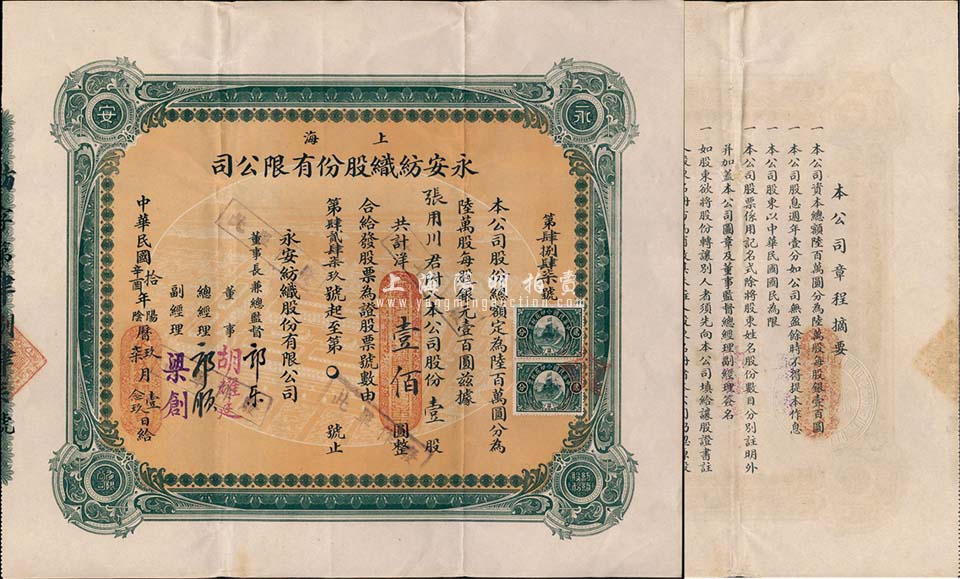 安
永
海上
司公限有份股織紡安永
本公司股份總額定為陸百萬圓分為
陸萬股每股銀元壹百圓茲據
張用川君附本公司股份壹股
共計洋壹佰圓整
合給發股票為證股票號數由
第肆貳肆柒玖號起至第〇號止
永安紡織股份有限公司
董事長兼總監督
董事
總經理
副經理
梁創
中華民國拾年陽曆玖月壹日給
辛酉陰柒念玖
上海陽明拍賣
www.ymingauction.com
本公司章程摘要
一本公司資本總額陸百萬圓分為陸萬股每股銀壹百圓
一本公司股息週年壹分如公司無盈餘時不得提本作息
一本公司股東以中華民國國民為限
一本公司股票係用記名式除將股東姓名股份數目分別註明外
并加蓋本公司圖章及董事監督總經理副經理簽名
一如股東欲將股份轉讓別人者須先向本公司填給讓股證書註